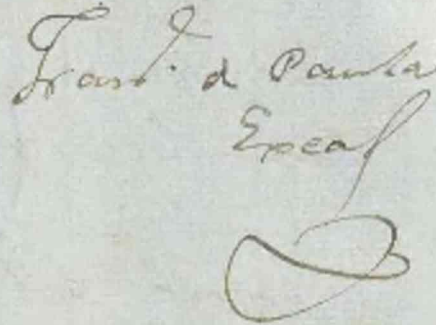 Fran.^co de Paula
Expeal